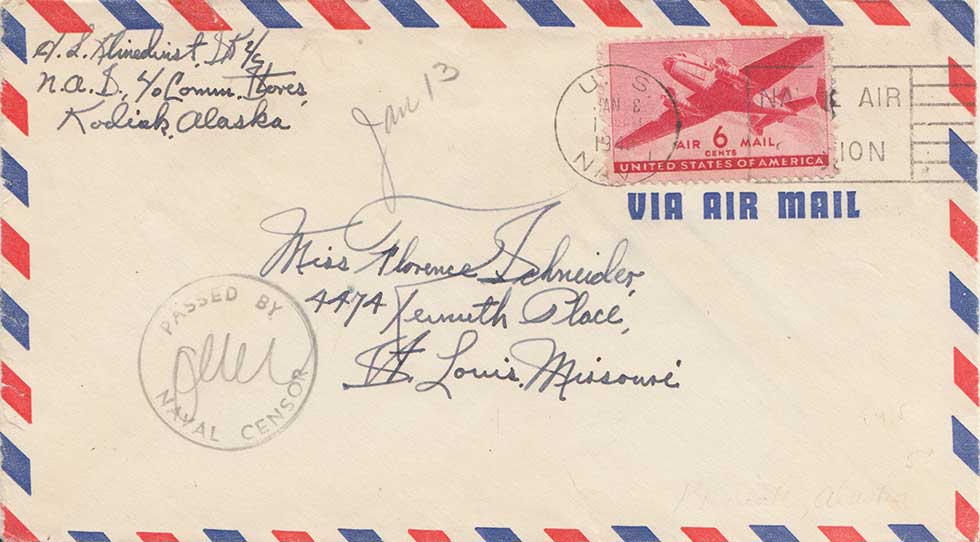 N.A.D., c/o Comm. Stores,
Kodiak, Alaska
Jan 13
U S
JAN 8
194
NAV
NA AIR
ION
AIR 6 MAIL
CENTS
UNITED STATES OF AMERICA
VIA AIR MAIL
Miss Florence Schneider,
4474 Kennuth Place,
St. Louis, Missouri
PASSED BY
NAVAL CENSOR